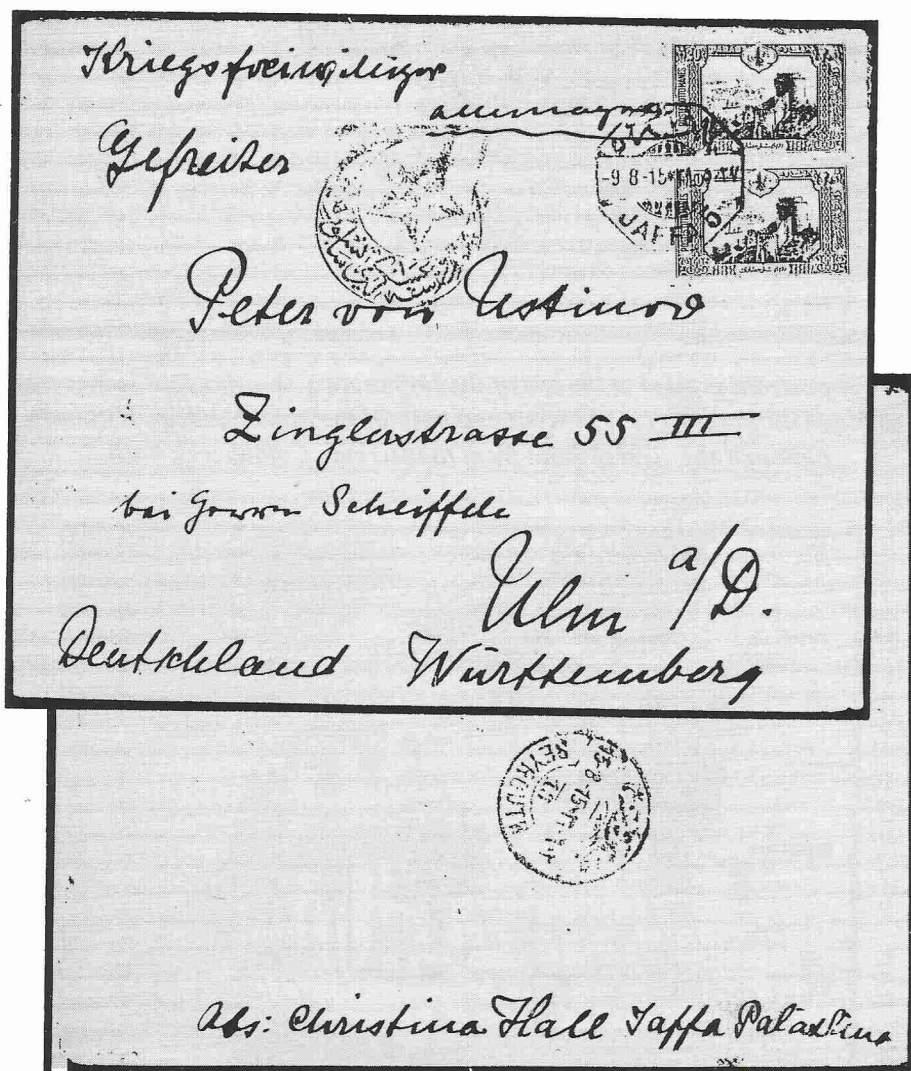 Kriegsfreiwilliger
allemagne
Gefreiter
-9 8-15
JAFFA
Peter von Ustinov
Zinglerstrasse 55 III
bei Herrn Scheiffele
Ulm a/D.
Deutschland Württemberg
BEYROUTH
15-8-15
Abs: Christina Hall Jaffa Palästina